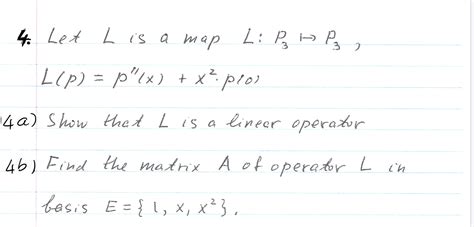 4. Let L is a map L: P₃ ↦ P₃,
L(p) = p''(x) + x²·p(0)
4a) Show that L is a linear operator
4b) Find the matrix A of operator L in
basis E = {1, x, x²}.